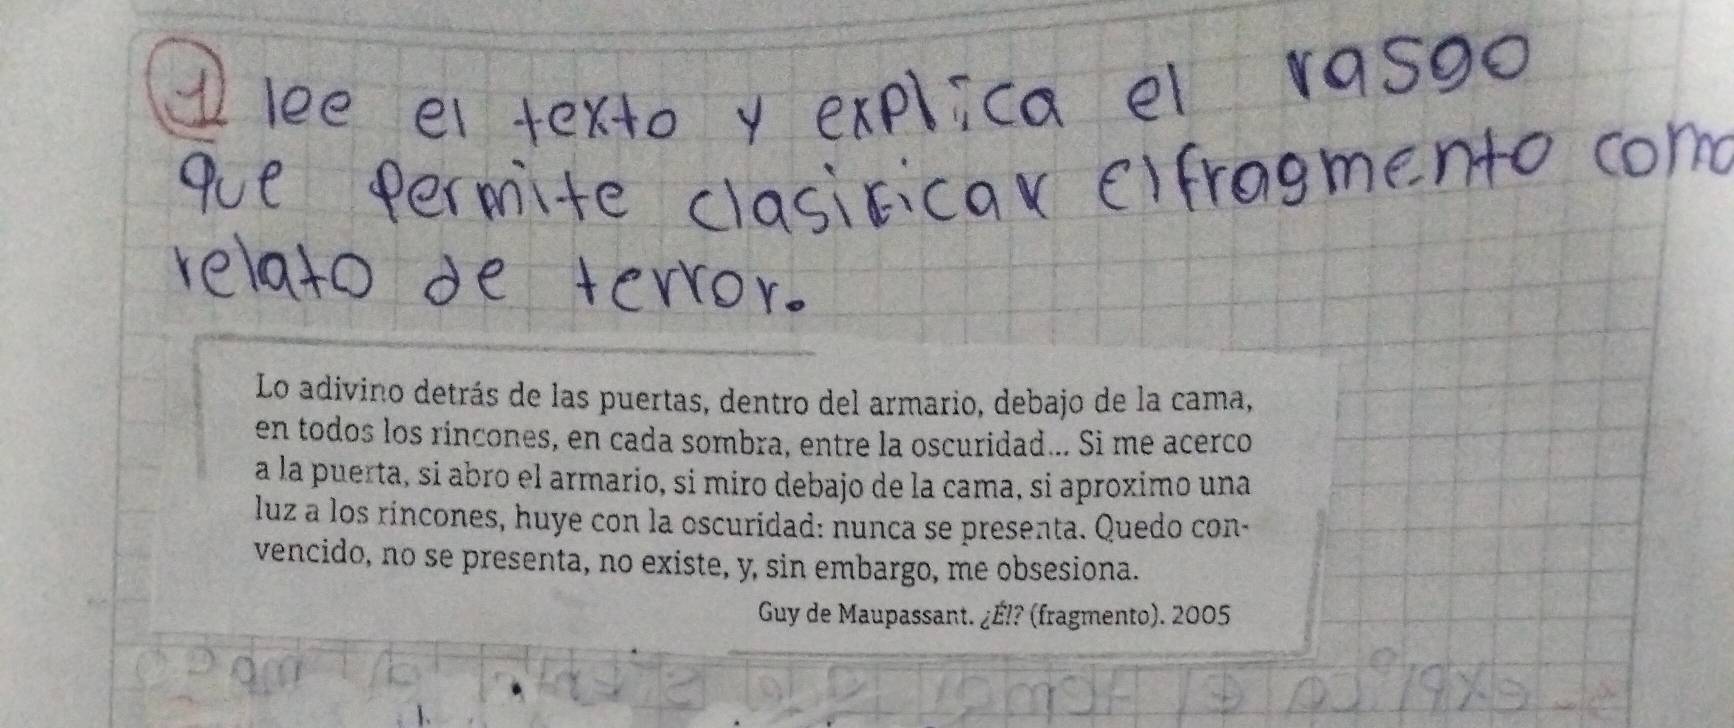 1 lee el texto y explica el rasgo
que permite clasificar el fragmento como
relato de terror.
Lo adivino detrás de las puertas, dentro del armario, debajo de la cama,
en todos los rincones, en cada sombra, entre la oscuridad... Si me acerco
a la puerta, si abro el armario, si miro debajo de la cama, si aproximo una
luz a los rincones, huye con la oscuridad: nunca se presenta. Quedo con-
vencido, no se presenta, no existe, y, sin embargo, me obsesiona.
Guy de Maupassant. ¿Él? (fragmento). 2005